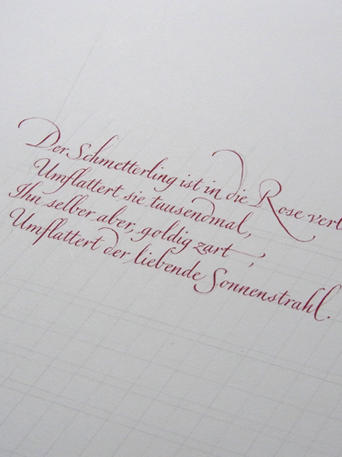 Der Schmetterling ist in die Rose verl
Umflattert sie tausendmal,
Ihn selber aber, goldig zart,
Umflattert der liebende Sonnenstrahl.